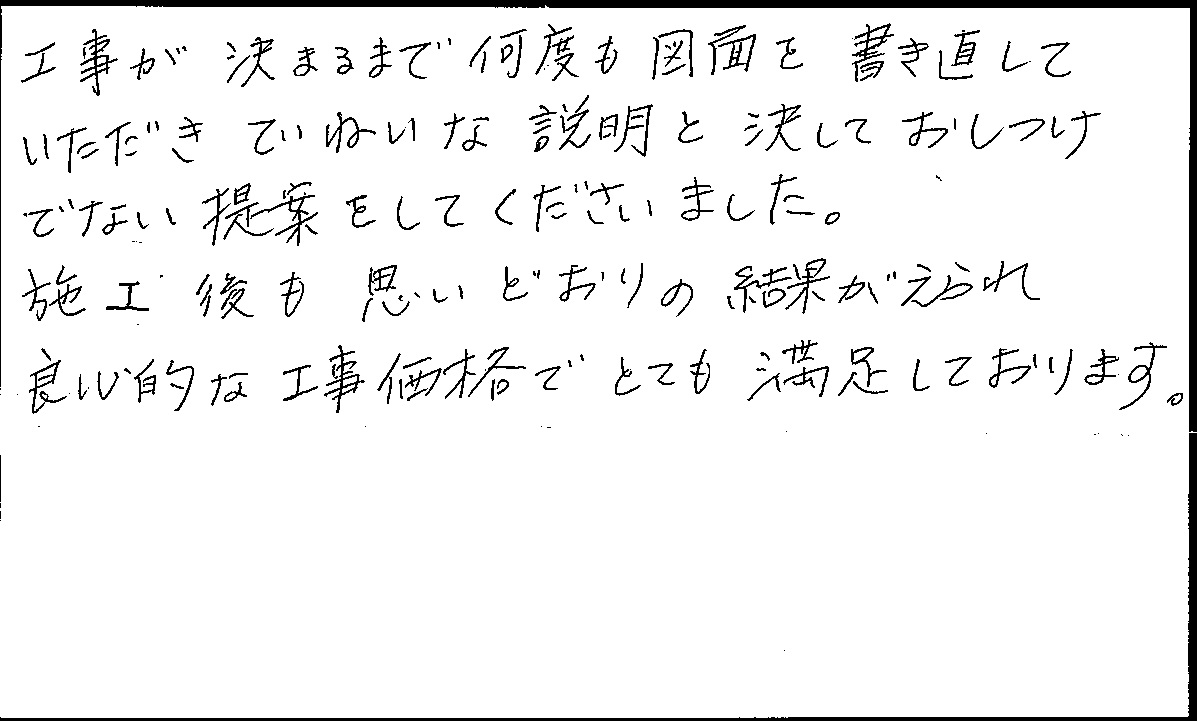 工事が決まるまで何度も図面を書き直して
いただきていねいな説明と決しておしつけ
でない提案をしてくださいました。
施工後も思いどおりの結果がえられ
良心的な工事価格でとても満足しております。